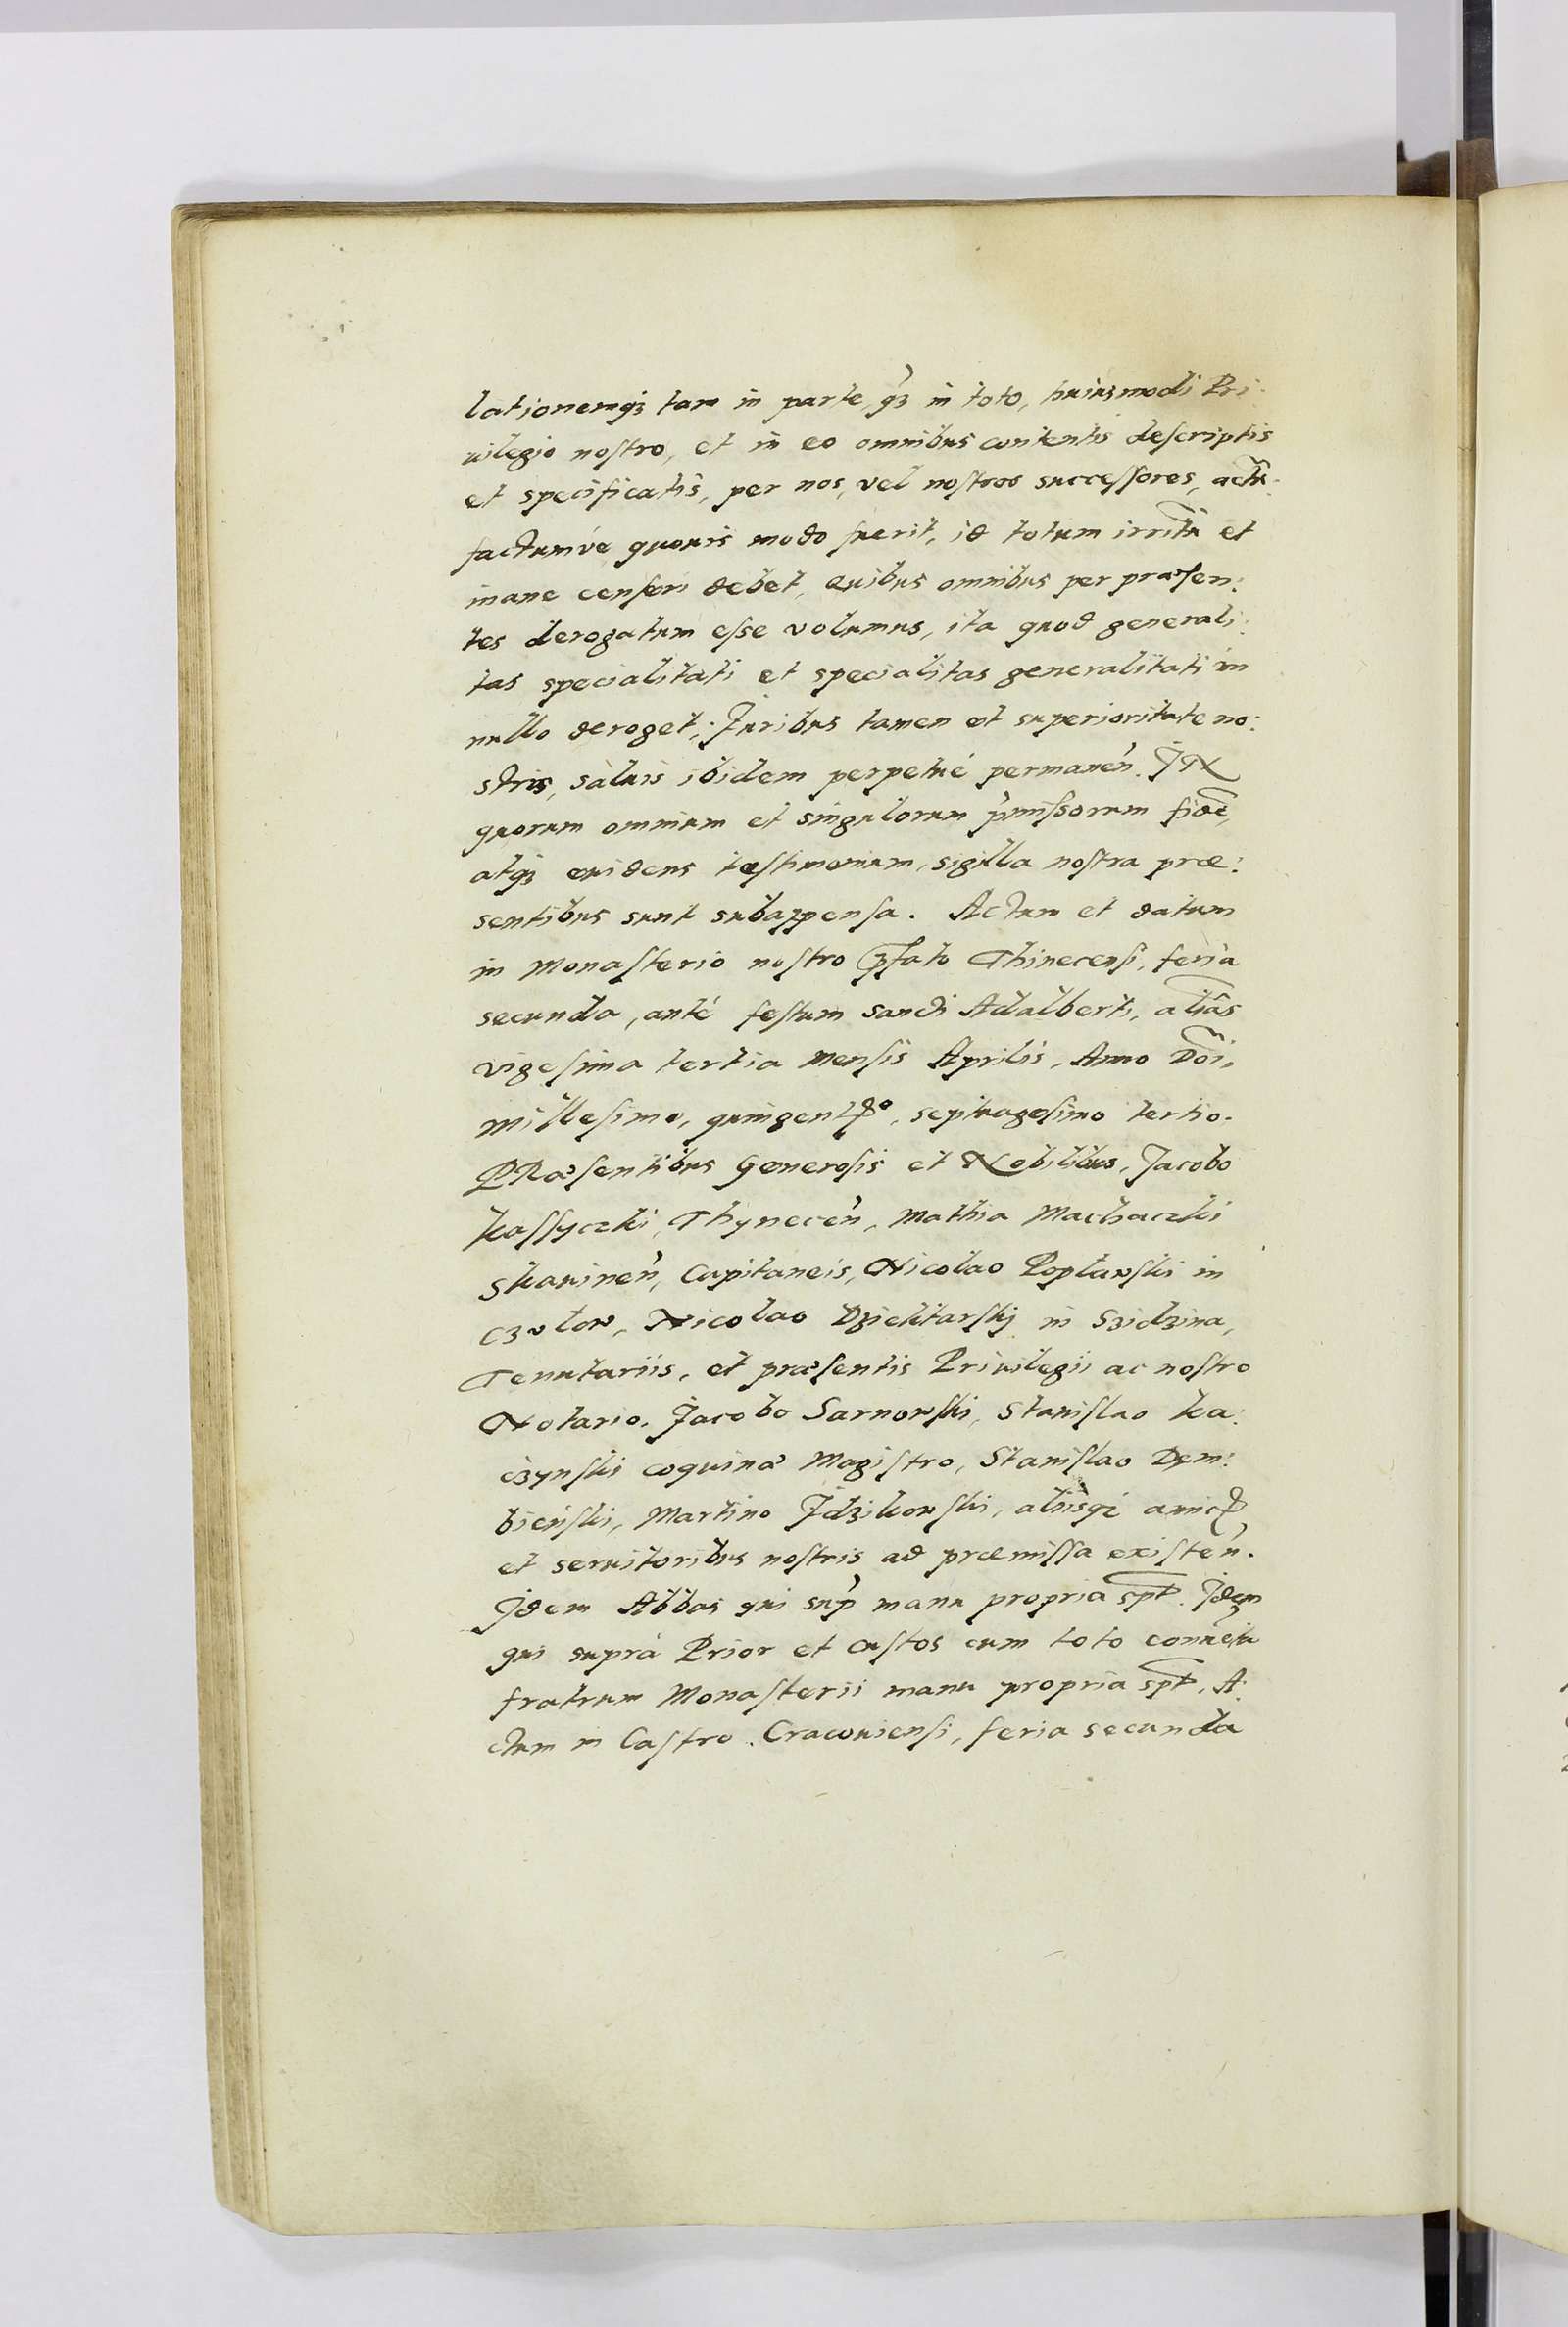 lationemqȝ tam in parte, qȝ in toto, huiusmodi Pri:
uilegio nostro, et in eo omnibus contentis descriptis
et specificatis, per nos, vel nostros successores, actũ
factumúe quouis modo fuerit, id totum irritũ et
inane censeri debet, Quibus omnibus per præsen:
tes derogatum esse volumus, ita quod generali:
tas specialitati et specialitas generalitati in
nullo deroget, Iuribus tamen et superioritate no:
stris, saluis ibidem perpetué permaneñ. IN
quorum omnium et singulorum p̃missorum fidẽ,
atqȝ euidens testimonium, sigilla nostra præ:
sentibus sunt subappensa. Actum et datum
in Monasterio nostro p̃fato Thinecensi, feria
secunda, anté festum Sancti Adalberti, aliâs
vigesima tertia mensis Aprilis, Anno Dñi,
millesimo, quingentꝭº, septuagesimo tertio.
PRæsentibus Generosis et Nobilibus, Jacobo
Kassyczki, Thyneceñ, Mathia Machaczki
Skauineñ, Capitaneis, Nicolao Poplawski in
Czulow, Nicolao Dziektarskij in Szidzina,
Tenutariis, et præsentis Priuilegii ac nostro
Notario, Jacobo Sarnowski, Stanislao Ka:
czynski coquinæ Magistro, Stanislao Dem:
bieński, Martino Idzikowski, aliisqȝ amicꝭ
et seruitoribus nostris ad præmissa existeñ.
Idem Abbas qui sup̃ manu propria spt̃. Idem
qui suprà Prior et Custos cum toto conuẽtu
fratrum Monasterii manu propria spt̃. A:
ctum in Castro Cracouiensi, feria secunda